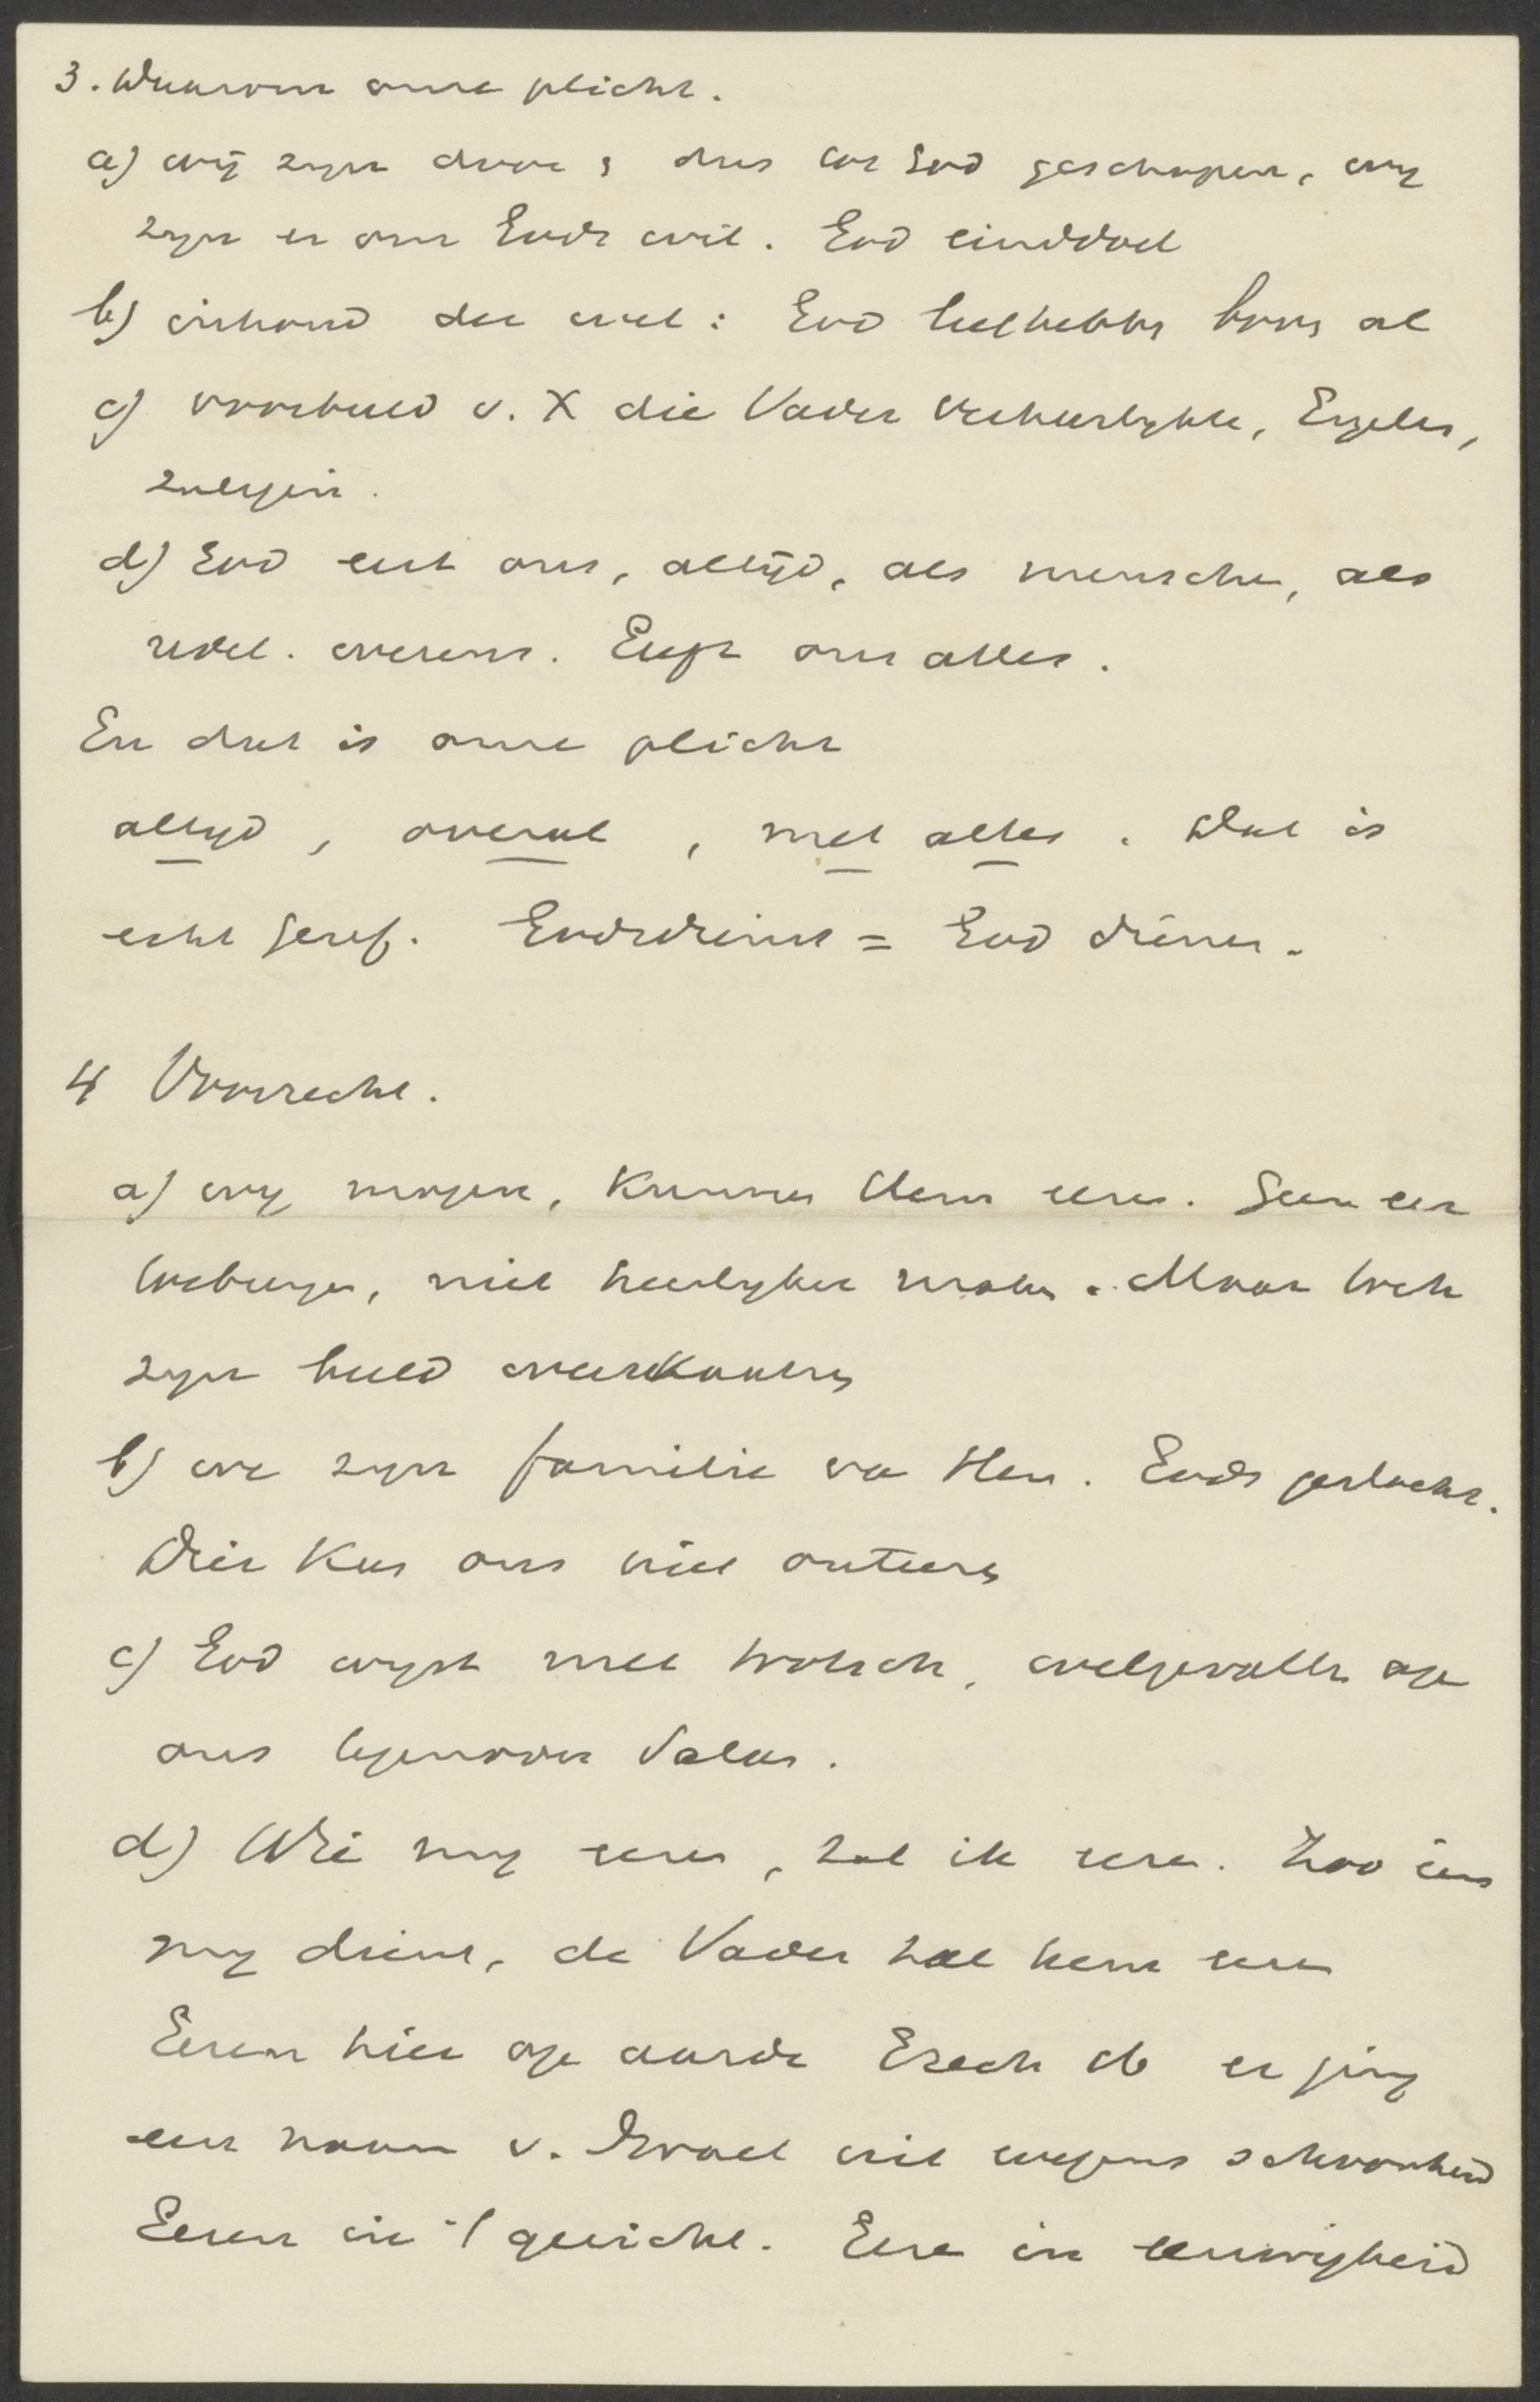 3. Waarom onze plicht.
a) wij zyn door, dus tot God geschapen, wy
zyn er om Gods wil. God einddoel
b) inhoud der wet: God liefhebben boven al
c) voorbeeld v. X die Vader verheerlykte, Engelen,
zaligen.
d) God eert ons, altijd, als menschen, als
redel. wezens. Geeft ons alles.
En dat is onze plicht
altyd, overal, met alles. Dat is
echt geref. Godsdienst = God dienen.
4 Voorrecht.
a) wy mogen, kunnen Hem eeren. Geen eer
toebrengen, niet heerlyker maken. Maar toch
zyn beeld weerkaatsen
b) we zyn familie van Hem. Gods geslacht.
Dier kan ons niet onteeren
c) God wyst met trotsch, welgevallen op
ons tegenover Satan.
d) Wie my eeren, zal ik eeren. Zoo iem
my dient, de Vader zal hem eeren
Eeren hier op aarde Ezech 16 er ging
een naam v. Israel uit wegens schoonheid
Eeren in 't gericht. Eere in eeuwigheid